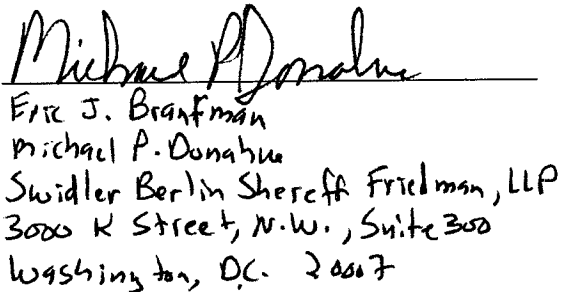 Michael P Donahue
Eric J. Branfman
Michael P. Donahue
Swidler Berlin Shereff Friedman, LLP
3000 K Street, N.W., Suite 300
Washington, D.C. 20007